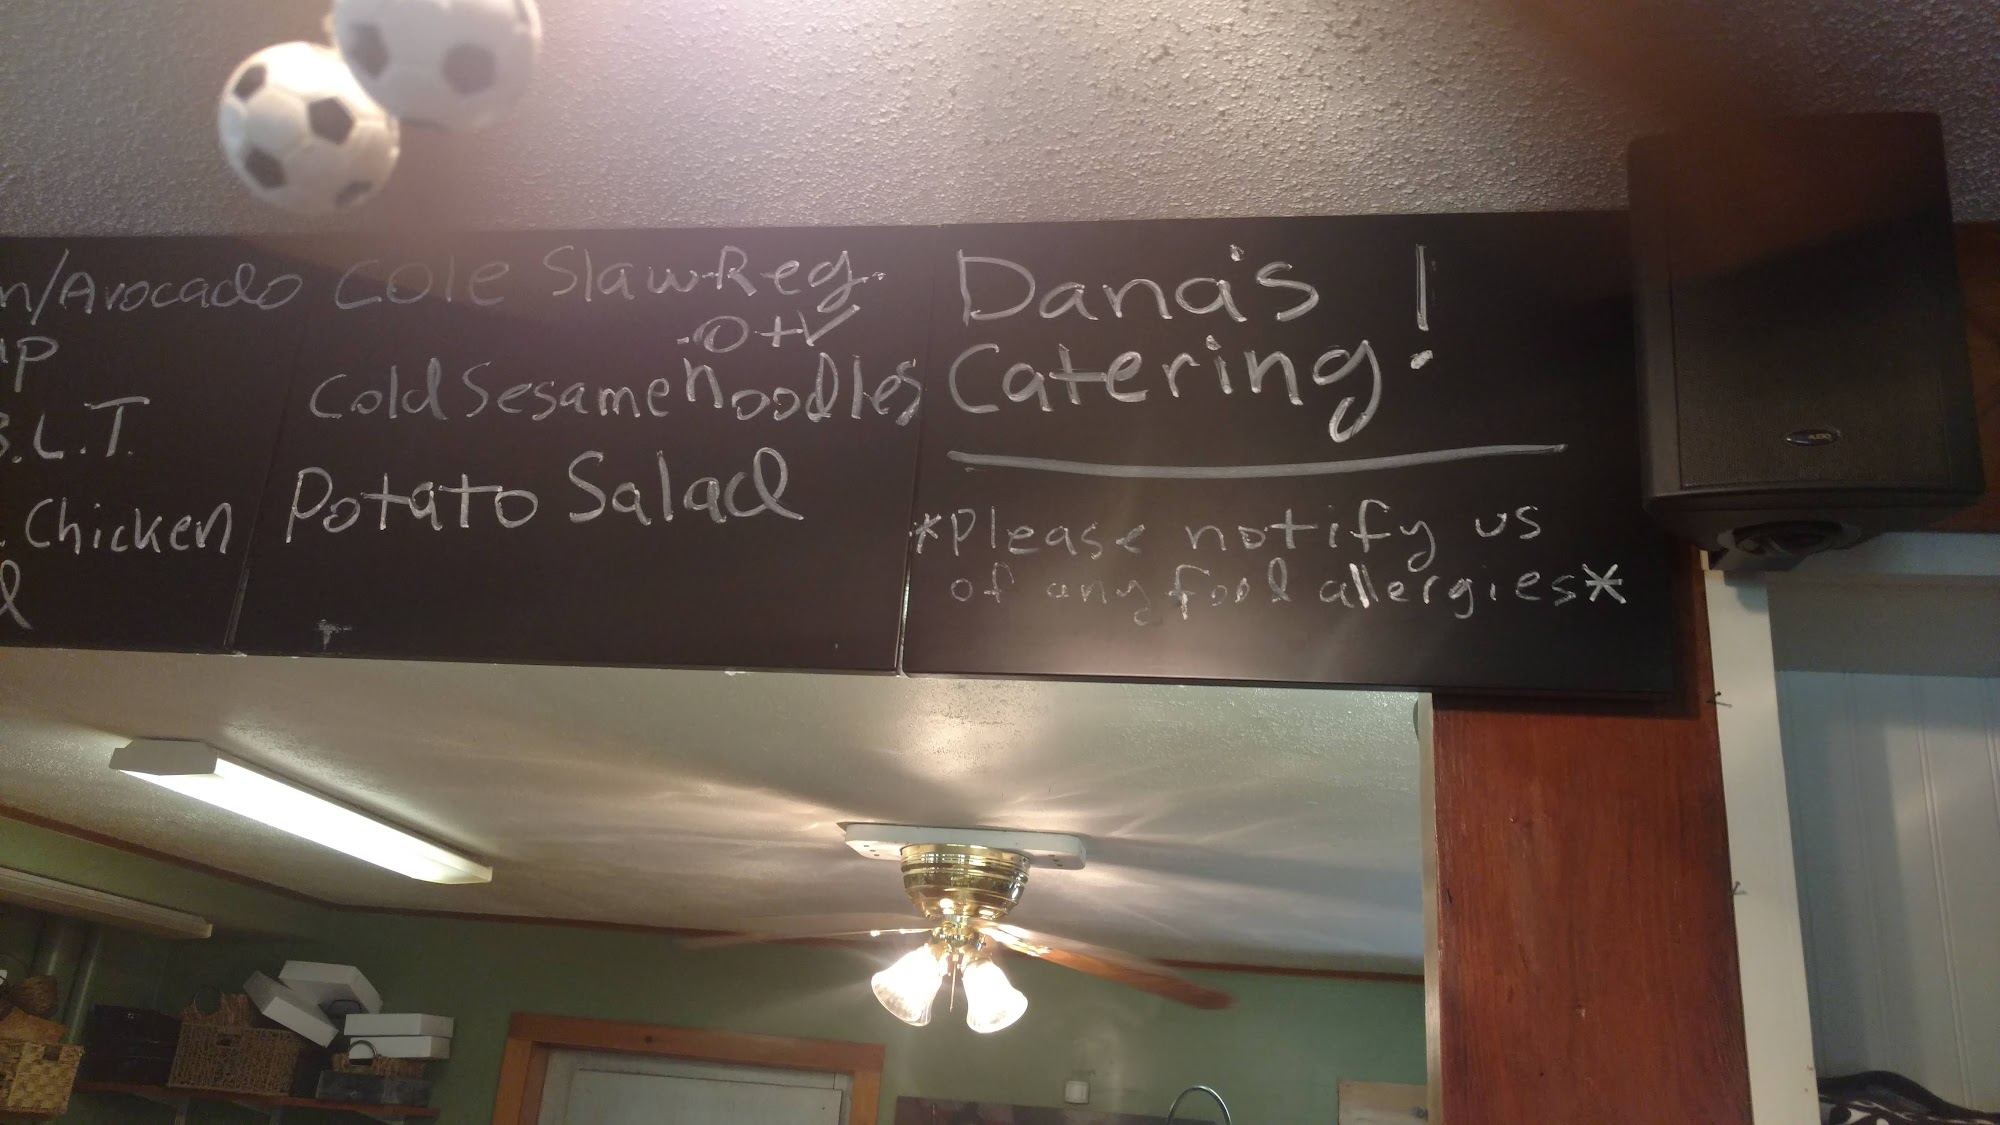 n/Avocado
up
B.L.T.
. Chicken
Cole Slaw-Reg.
-O+V
Cold Sesame Noodles
Potato Salad
Dana's
Catering!
*Please notify us
of any food allergies*
AUDIO